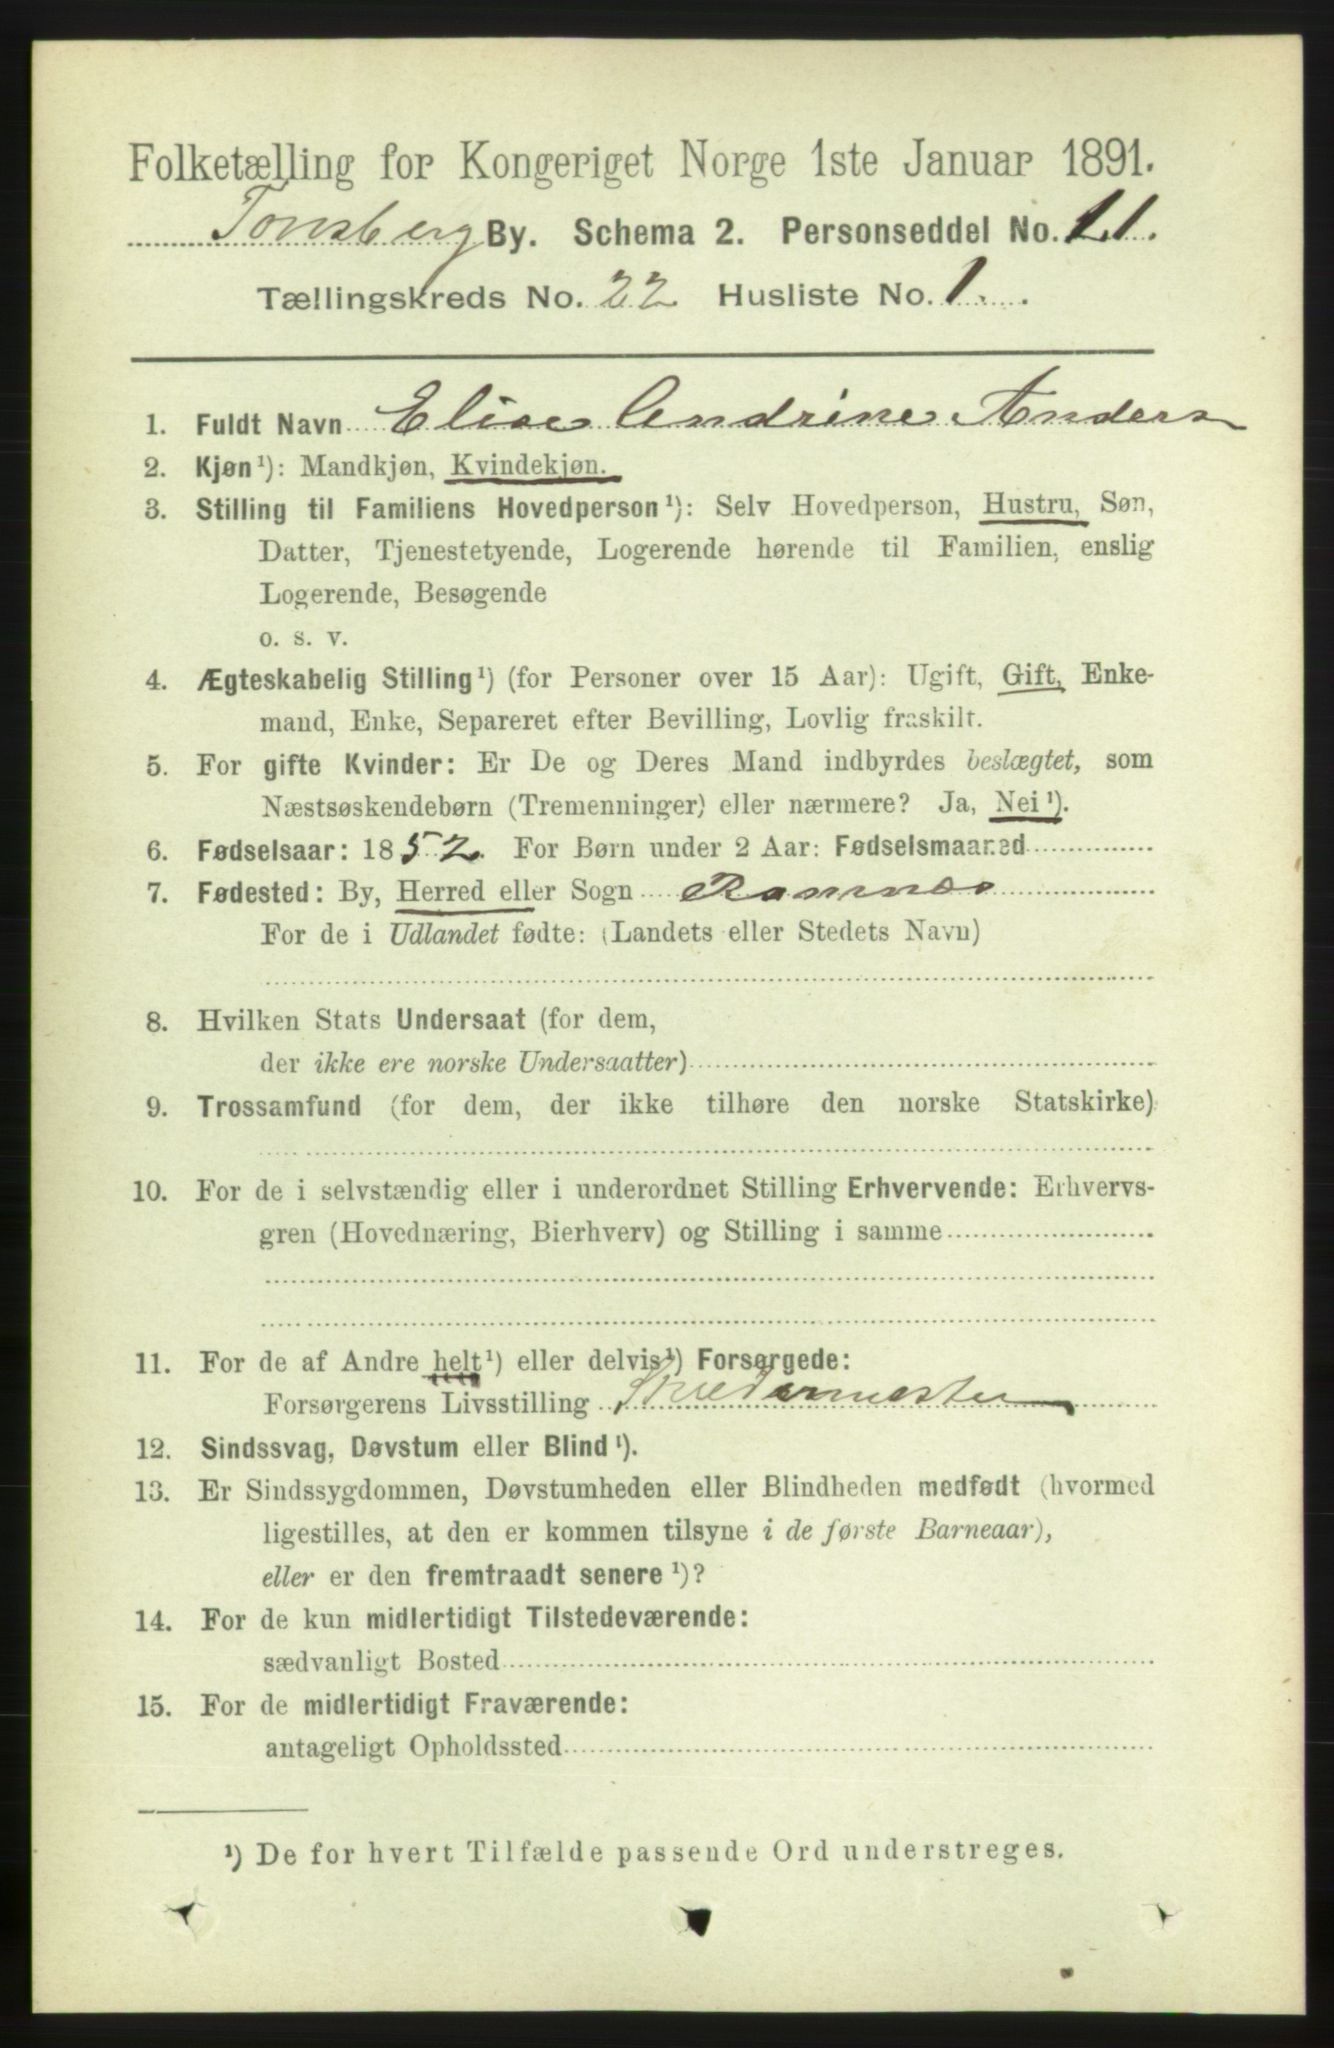 Folketælling for Kongeriget Norge 1ste Januar 1891.
Tonsberg By. Schema 2. Personseddel No. 11.
Tællingskreds No. 22 Husliste No. 1.
1. Fuldt Navn Elise Andrine Anders
2. Kjøn¹): Mandkjøn, Kvindekjøn.
3. Stilling til Familiens Hovedperson¹): Selv Hovedperson, Hustru, Søn,
Datter, Tjenestetyende, Logerende hørende til Familien, enslig
Logerende, Besøgende
o. s. v.
4. Ægteskabelig Stilling¹) (for Personer over 15 Aar): Ugift, Gift, Enke-
mand, Enke, Separeret efter Bevilling, Lovlig fraskilt.
5. For gifte Kvinder: Er De og Deres Mand indbyrdes beslægtet, som
Næstsøskendebørn (Tremenninger) eller nærmere? Ja, Nei¹).
6. Fødselsaar: 1852. For Børn under 2 Aar: Fødselsmaaned
7. Fødested: By, Herred eller Sogn Ramnæs
For de i Udlandet fødte: (Landets eller Stedets Navn)
8. Hvilken Stats Undersaat (for dem,
der ikke ere norske Undersaatter)
9. Trossamfund (for dem, der ikke tilhøre den norske Statskirke)
10. For de i selvstændig eller i underordnet Stilling Erhvervende: Erhvervs-
gren (Hovednæring, Bierhverv) og Stilling i samme
11. For de af Andre helt¹) eller delvis¹) Forsørgede:
Forsørgerens Livsstilling Skrædermester
12. Sindssvag, Døvstum eller Blind¹).
13. Er Sindssygdommen, Døvstumheden eller Blindheden medfødt (hvormed
ligestilles, at den er kommen tilsyne i de første Barneaar),
eller er den fremtraadt senere¹)?
14. For de kun midlertidigt Tilstedeværende:
sædvanligt Bosted
15. For de midlertidigt Fraværende:
antageligt Opholdssted
¹) De for hvert Tilfælde passende Ord understreges.